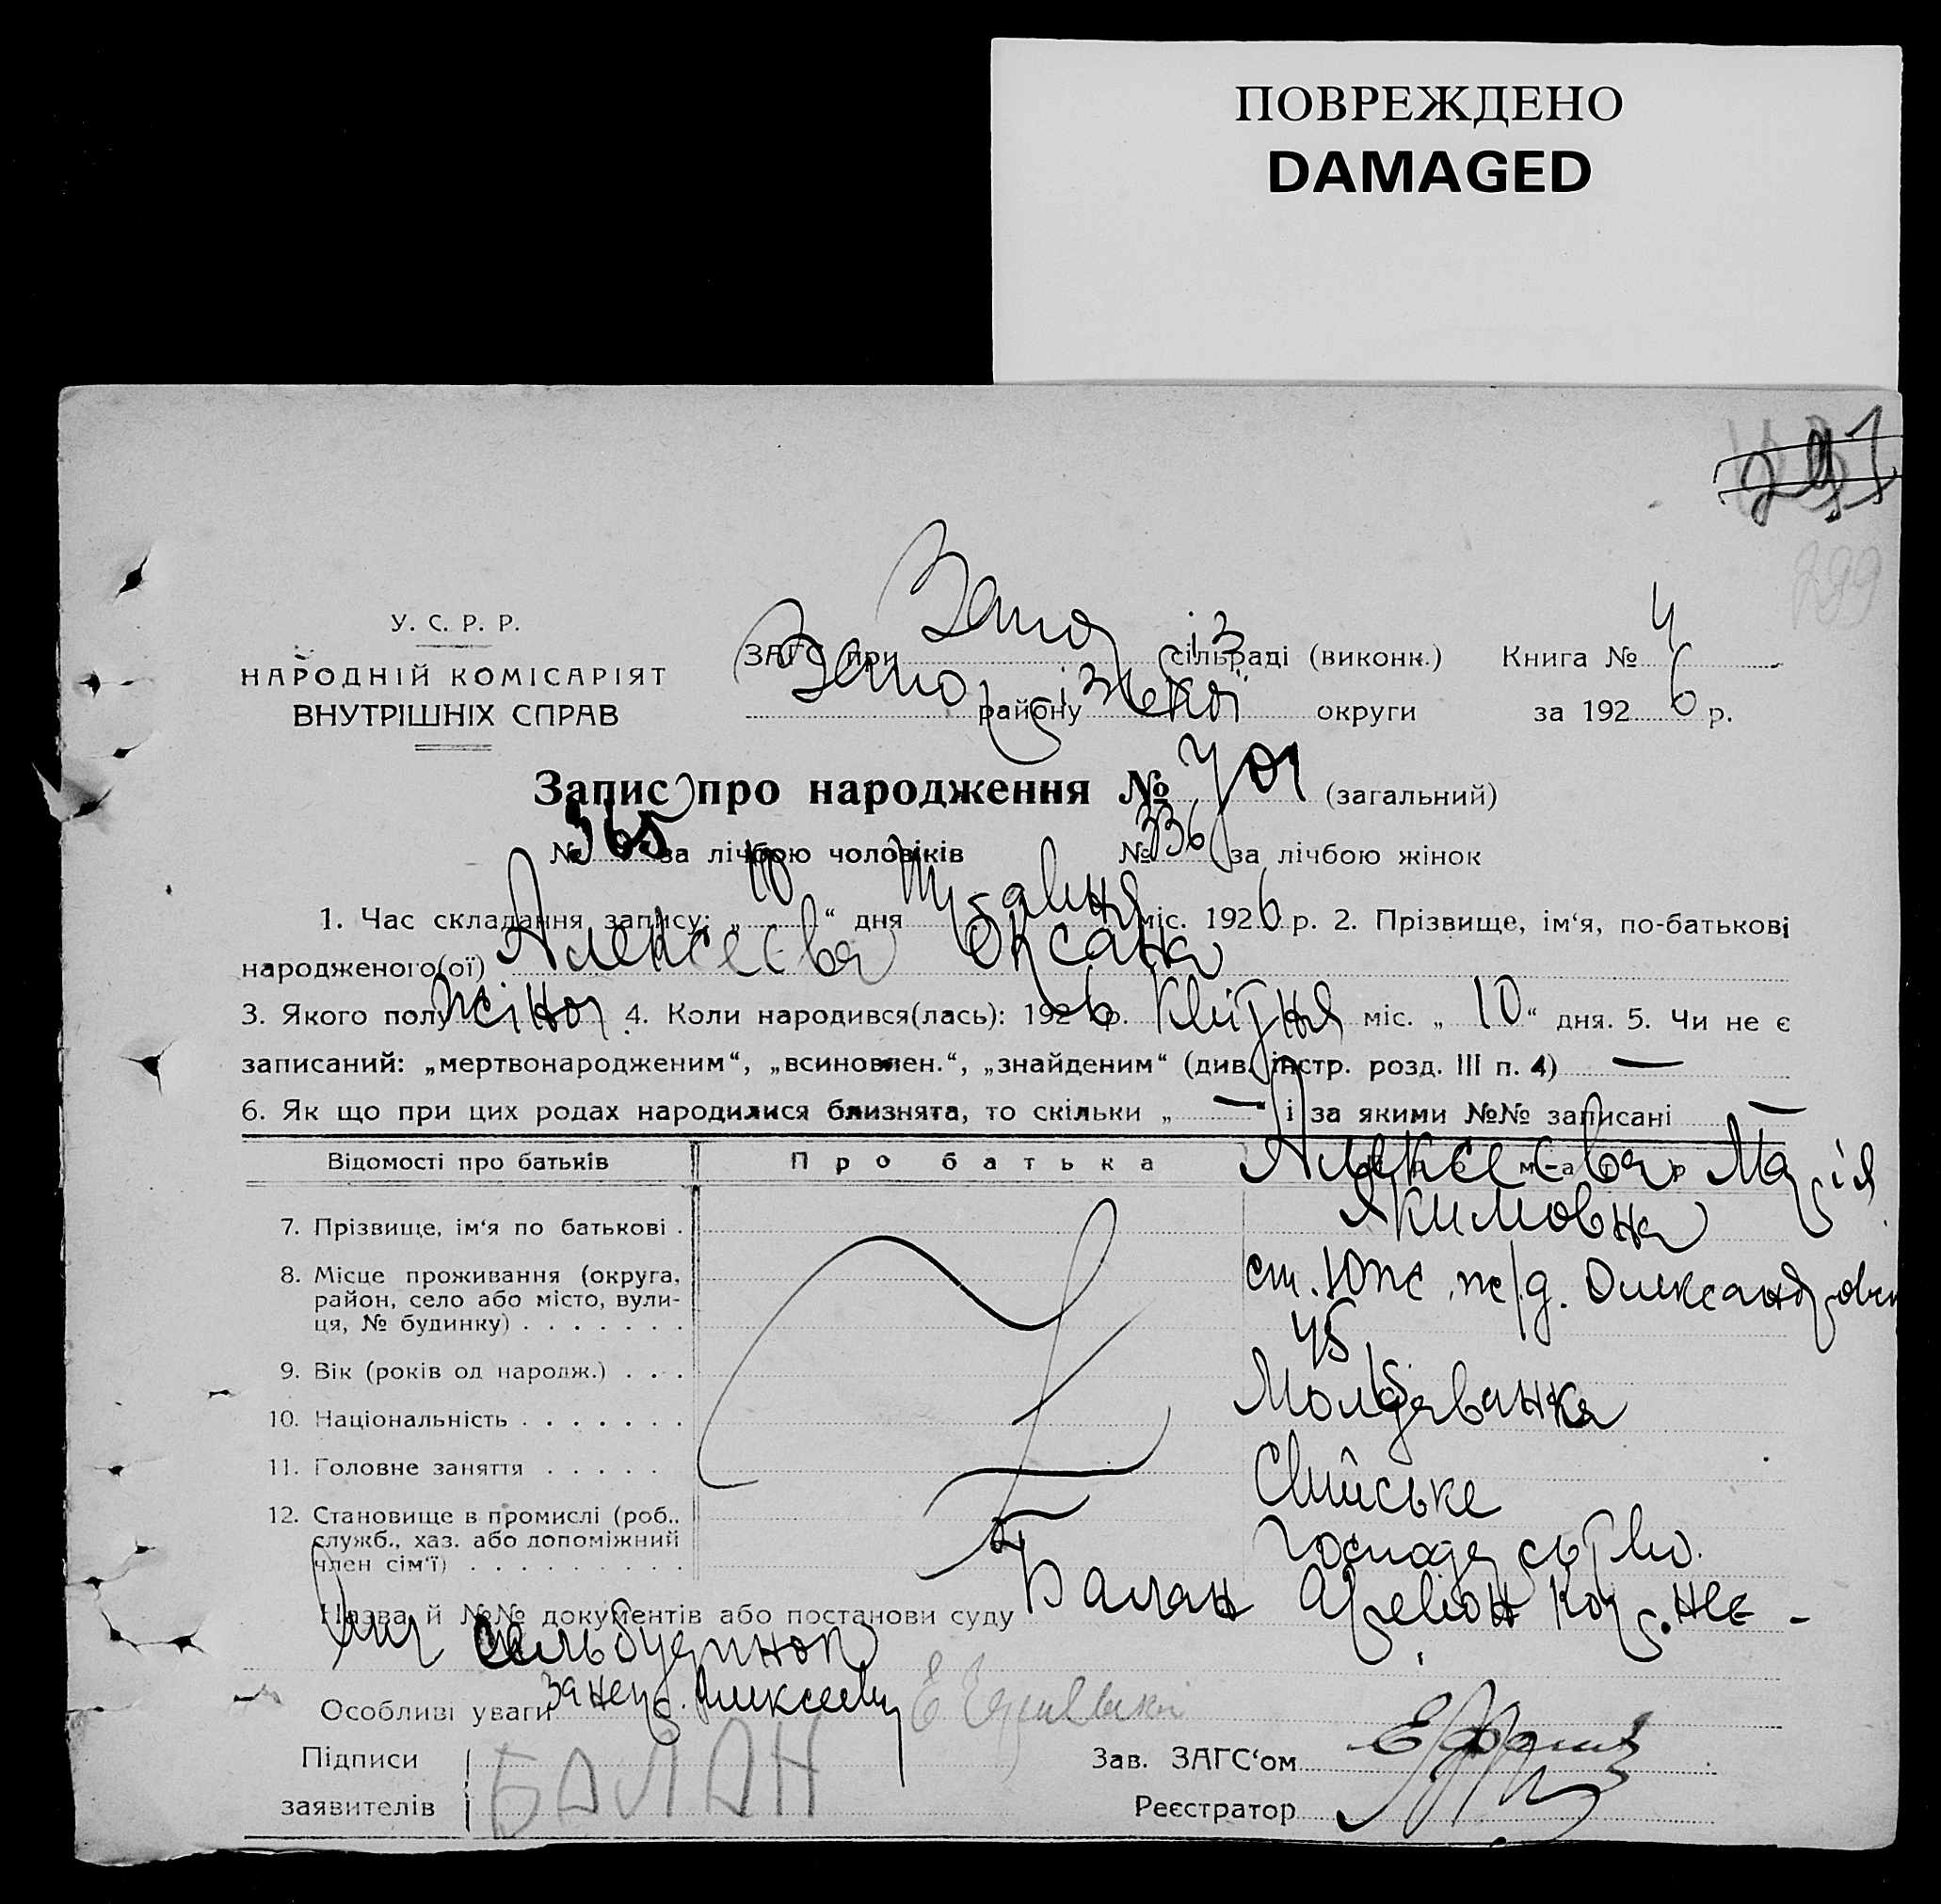 ПОВРЕЖДЕНО
DAMAGED
291
299
У. С. Р. Р.
НАРОДНІЙ КОМІСАРІЯТ
ВНУТРІШНІХ СПРАВ
ЗАГС при Запор сільраді (виконк.) Книга № 4
Запорізької району округи за 1926 р.
Запис про народження № 701 (загальний)
№ 365 за лічбою чоловіків № 336 за лічбою жінок
1. Час складання запису: „10“ дня Травня міс. 1926 р. 2. Прізвище, ім‘я, по-батькові
народженого(ої) Алексєєва Оксана
3. Якого полу жіноч. 4. Коли народився(лась): 1926 р. Квітня міс. „10“ дня. 5. Чи не є
записаний: „мертвонародженим“, „всиновлен.“, „знайденим“ (див. інстр. розд. III п. 4) —
6. Як що при цих родах народилися близнята, то скільки „ — і за якими №№ записані —
Відомості про батьків Про батька
7. Прізвище, ім‘я по батькові . Алексєєва Марія
Якимовна
8. Місце проживання (округа,
район, село або місто, вули-
ця, № будинку) . . . . . . .
ст. Южн. ж/д.
9. Вік (років од народж.) . . . 45
10. Національність . . . . . . . Молдаванка
11. Головне заняття . . . . . Сільське
12. Становище в промислі (роб..
служб., хаз. або допоміжний
член сім‘ї) . . . . . . . . .
господарство.
Назва й №№ документів або постанови суду Балан
Особливі уваги
Підписи
заявителів
БАЛАН
Зав. ЗАГС‘ом
Реєстратор